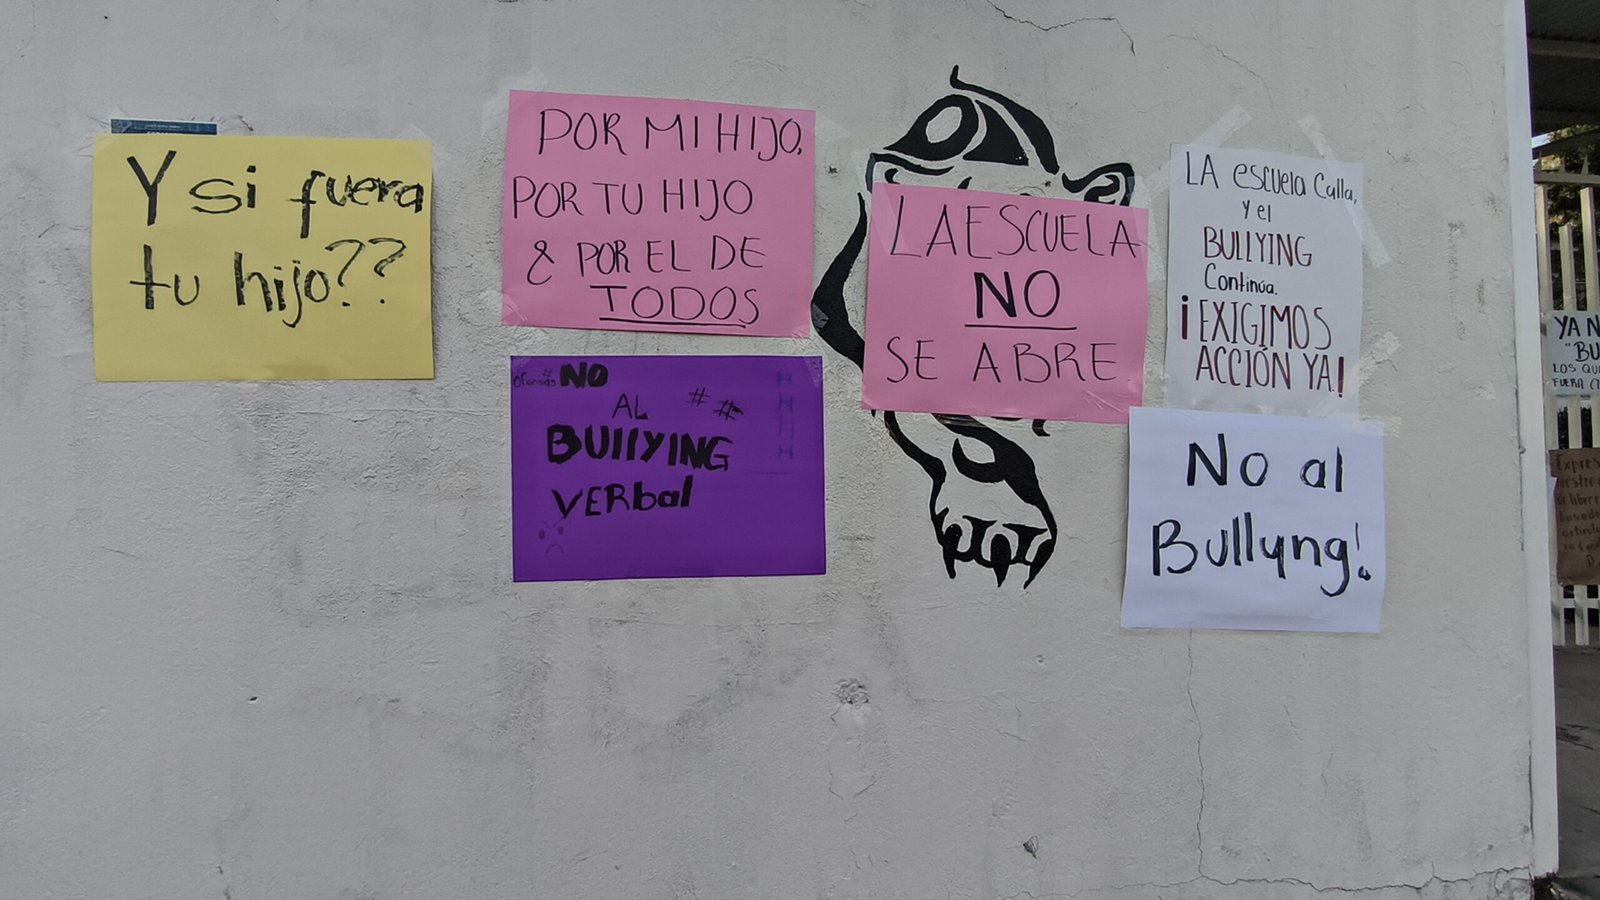 Y si fuera
tu hijo??
POR MI HIJO,
POR TU HIJO
& POR EL DE
TODOS
#
NO
AL
##
BUllYING
VERbal
LA ESCUELA
NO
SE ABRE
LA escuela Calla,
y el
BULLYING
Continúa.
¡EXIGIMOS
ACCIÓN YA!
No al
Bullyng!
YA N
"BU
LOS QU
FUERA (T
Expres